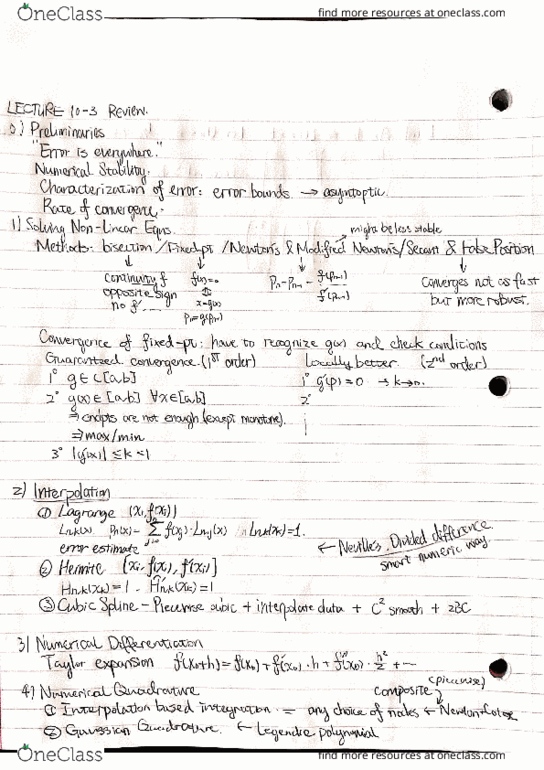 OneClass
find more resources at oneclass.com
LECTURE 10-3 Review.
0) Preliminaries
"Error is everywhere."
Numerical Stability.
Characterization of error: error bounds → asymptotic.
Rate of convergence.
1) Solving Non-Linear Eqns.
might be less stable
Methods: bisection / Fixed pt / Newton's & Modified Newton's / Secant & False Position
continuity f
opposite sign
no f' ....
f(x)=0
⇕
x=g(x)
Pn=g(Pn-1)
Pn=Pn-1 - f(Pn-1)/f'(Pn-1)
Converges not as fast
but more robust.
Convergence of fixed-pt: have to recognize g(x) and check conditions
Guaranteed convergence. (1ST order)
1° g ∈ C[a,b]
2° g(x) ∈ [a,b] ∀x∈[a,b]
⇒ endpts are not enough (except monotone).
⇒ max/min
3° |g'(x)| ≤ k < 1
Locally better. (2nd order)
1° g'(p) = 0 → k→0.
2°
2) Interpolation
① Lagrange (xi, f(xi))
Ln,k(x) Pn(x)= Σ f(xj)·Ln,j(x) Ln,k(xk)=1.
error estimate
← Neville's, Divided difference
smart numeric way.
② Hermite [xi, f(xi), f'(xi)]
Hn,k(xk) = 1 . Ĥ'n,k(xk) = 1
③ Cubic Spline - Piecewise cubic + interpolate data + C² smooth + 2BC
3) Numerical Differentiation
Taylor expansion f(x0+h) = f(x0) + f'(x0)·h + f''(x0)· h²/2 + ...
4) Numerical Quadrature
(piecewise)
composite
① Interpolation based integration = any choice of nodes ← Newton-Cotes
② Gaussian Quadrature. ← Legendre polynomial
OneClass
find more resources at oneclass.com